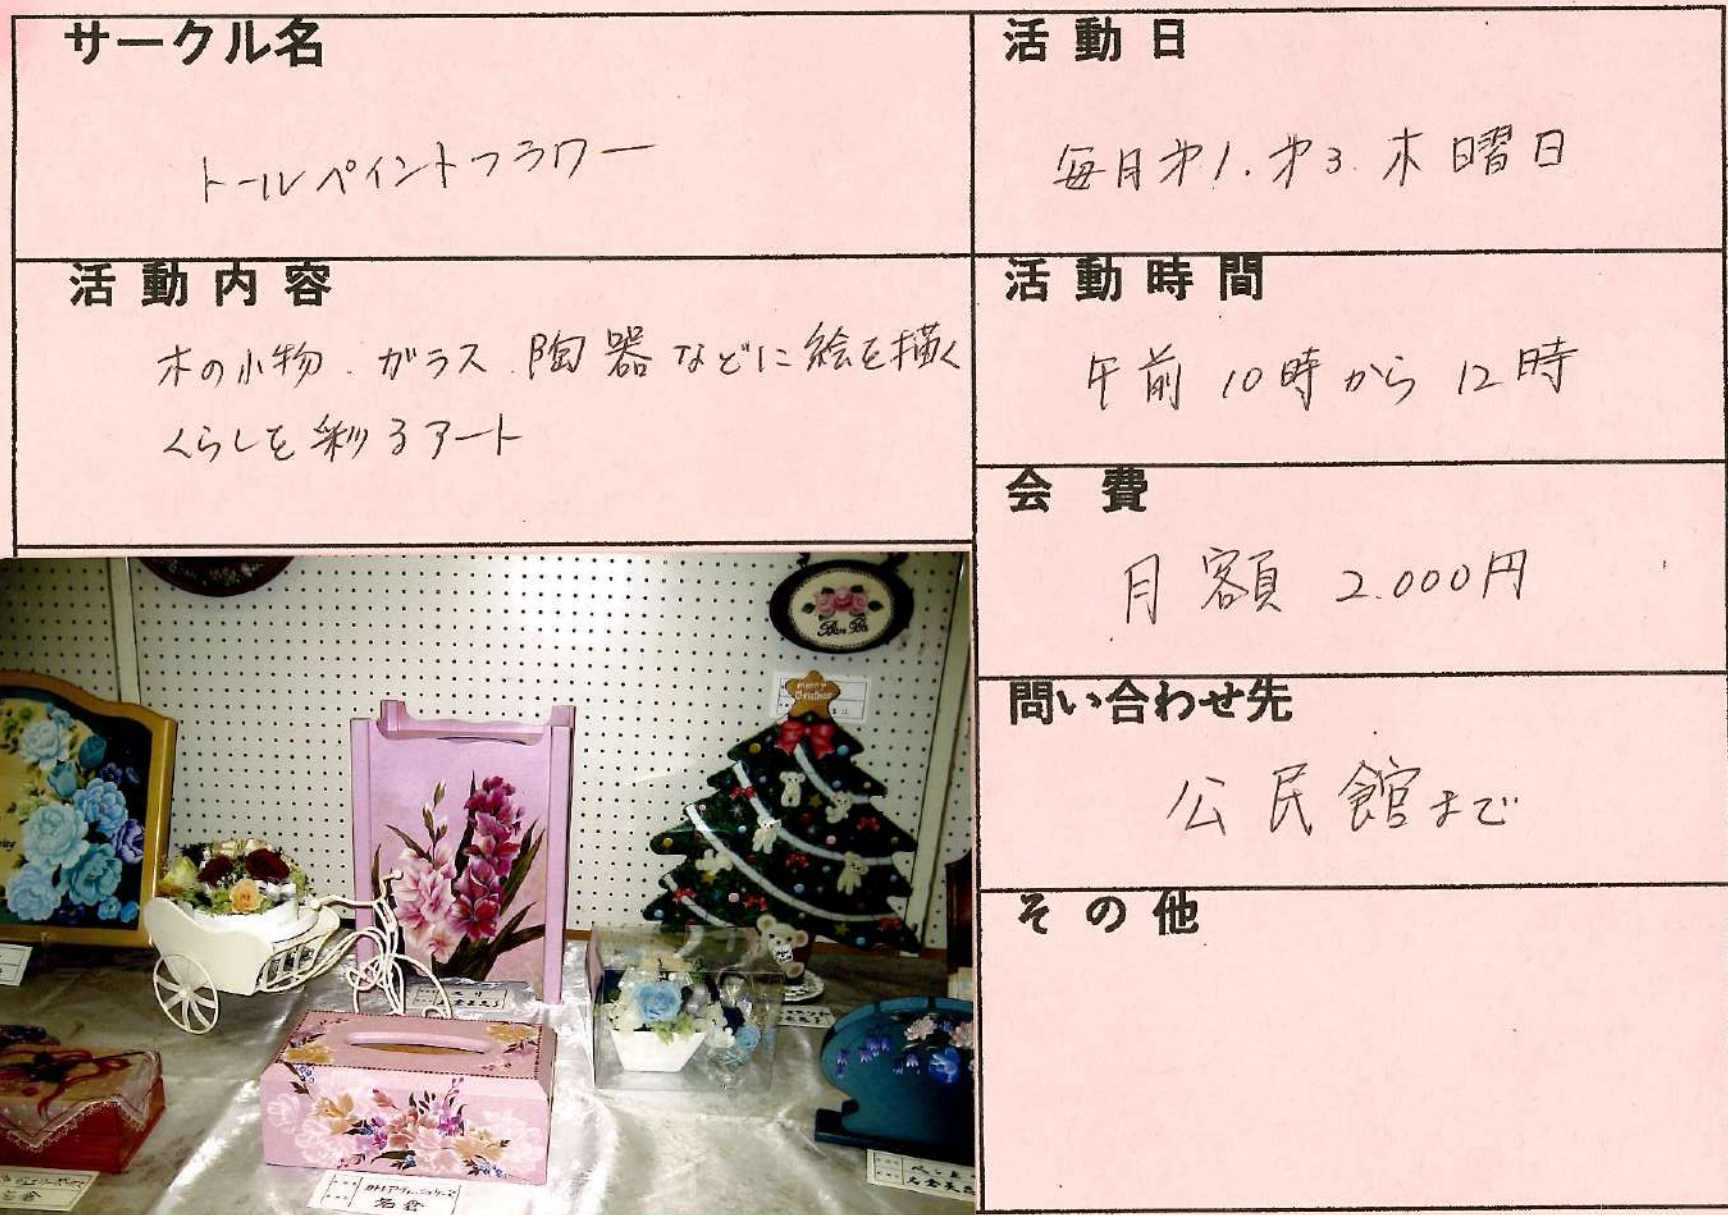 サークル名
トールペイントフラワー
活動内容
木の小物．ガラス．陶器などに絵を描く
くらしを彩るアート
活動日
毎月才1．才3．木曜日
活動時間
午前10時から12時
会費
月額 2.000円
問い合わせ先
公民館まで
その他
Merry
Christmas
名倉